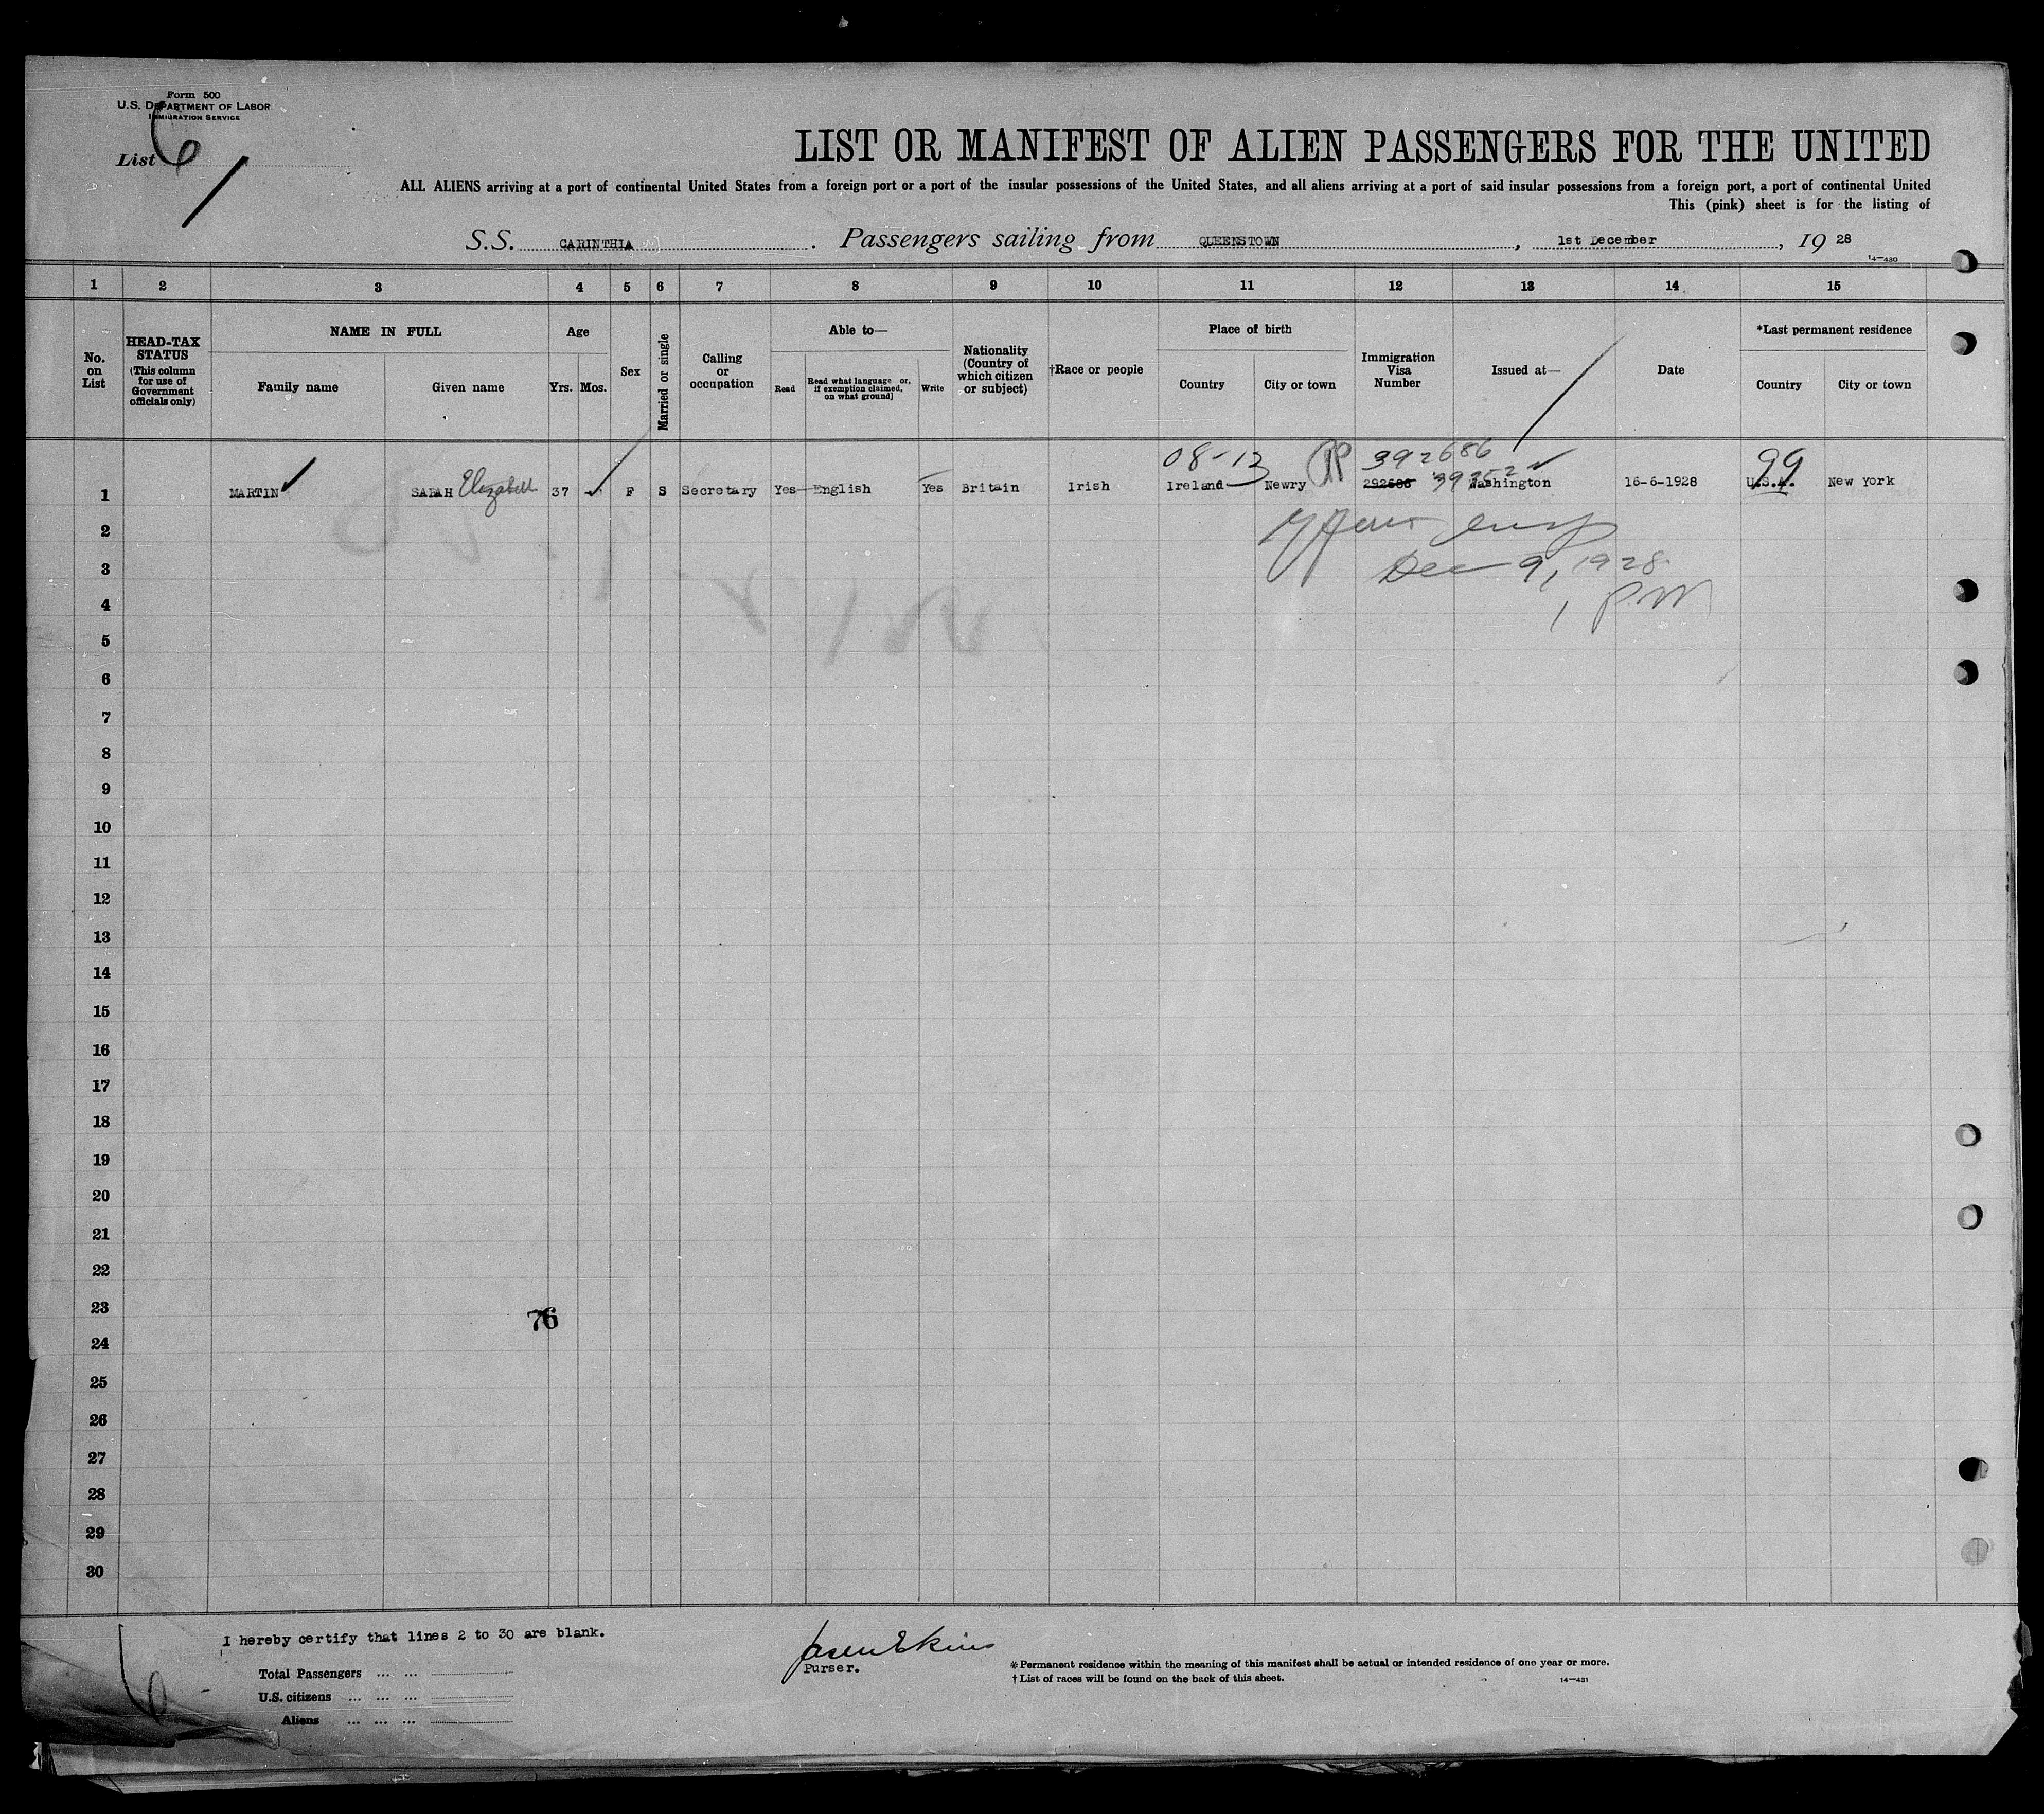 Form 500
U.S. DEPARTMENT OF LABOR
IMMIGRATION SERVICE
List 6
LIST OR MANIFEST OF ALIEN PASSENGERS FOR THE UNITED
ALL ALIENS arriving at a port of continental United States from a foreign port or a port of the insular possessions of the United States, and all aliens arriving at a port of said insular possessions from a foreign port, a port of continental United
This (pink) sheet is for the listing of
S.S. CARINTHIA. Passengers sailing from QUEENSTOWN, 1st December, 19 28
14-480
1 2 3 4 5 6 7 8 9 10 11 12 13 14 15
No. on List
HEAD-TAX STATUS (This column for use of Government officials only)
NAME IN FULL
Family name Given name
Age
Yrs. Mos.
Sex
Married or single
Calling or occupation
Able to—
Read Read what language or, if exemption claimed, on what ground] Write
Nationality (Country of which citizen or subject)
†Race or people
Place of birth
Country City or town
Immigration Visa Number
Issued at—
Date
*Last permanent residence
Country City or town
08-13 392686
99
1 MARTIN SARAH Elizabeth 37 F S Secretary Yes English Yes Britain Irish Ireland Newry 292686 Washington 16-6-1928 U.S.A. New York
2
Dec 9, 1928
3
1 P.M
4
5
6
7
8
9
10
11
12
13
14
15
16
17
18
19
20
21
22
23
76
24
25
26
27
28
29
30
I hereby certify that lines 2 to 30 are blank.
Purser.
Total Passengers ... ...
U.S. citizens ... ... ...
Aliens ... ... ...
6
*Permanent residence within the meaning of this manifest shall be actual or intended residence of one year or more.
†List of races will be found on the back of this sheet.
14-431